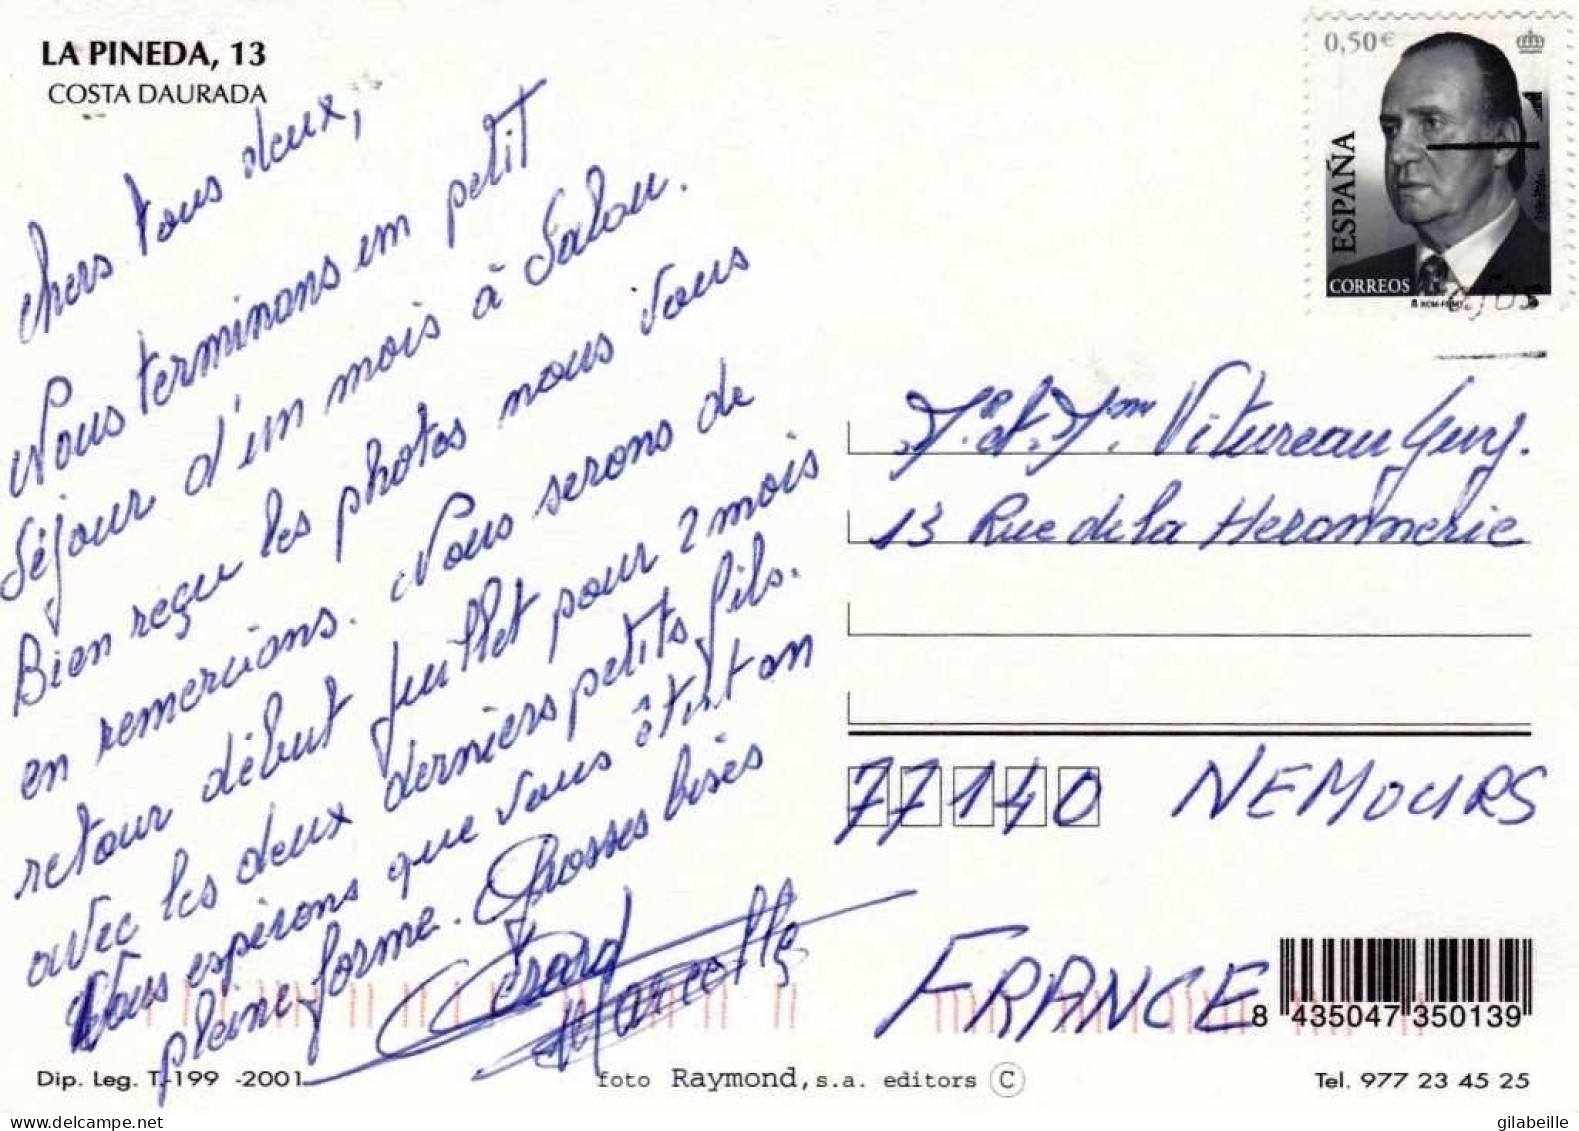 LA PINEDA, 13
COSTA DAURADA
chers tous deux,
Nous terminons um petit
séjour d'un mois à Salou.
Bien reçu les photos nous vous
en remercions. Nous serons de
retour début juillet pour 2 mois
avec les deux derniers petits fils.
Nous espérons que vous êtes ton
pleine forme. Grosses bises
Gérard
Marcelle
0,50€
ESPAÑA
CORREOS
RCM-FNMT
Mr et Mme Vitureau Guy.
13 Rue de la Heronnerie
77140 NEMOURS
FRANCE
8 435047 350139
Dip. Leg. T.-199 -2001
foto Raymond, s.a. editors C
Tel. 977 23 45 25
gilabeille